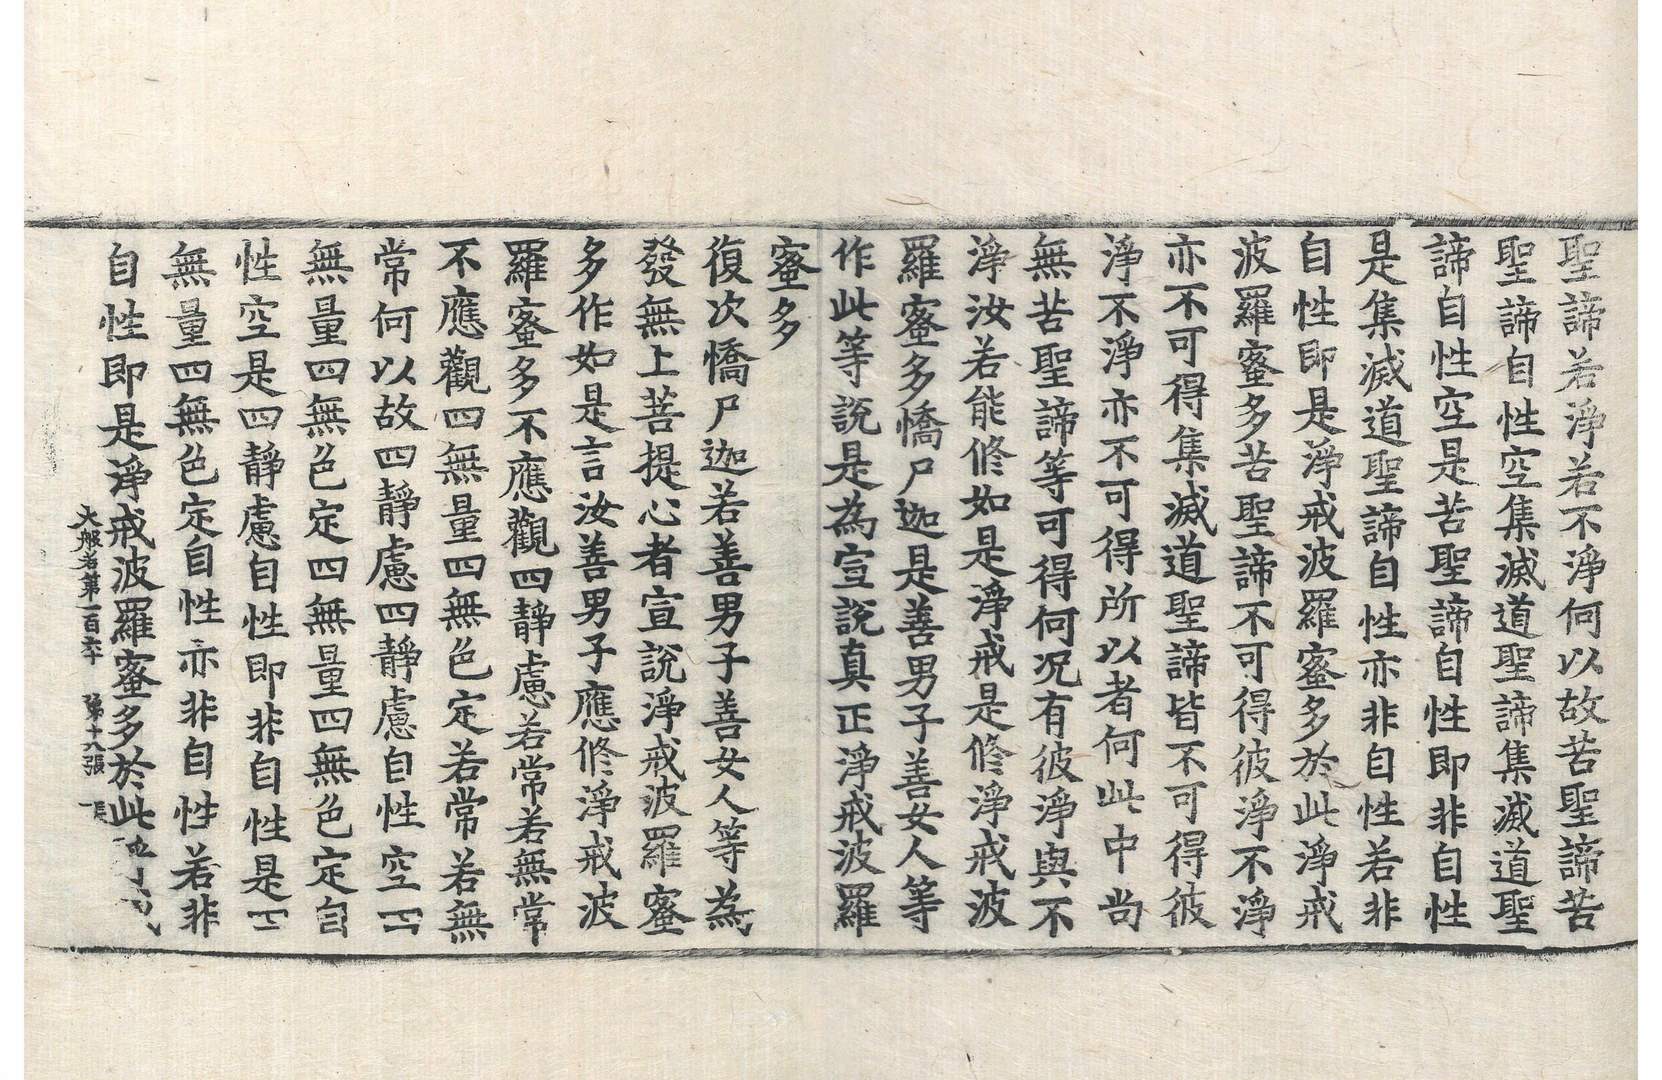 聖諦若淨若不淨何以故苦聖諦苦
聖諦自性空集滅道聖諦集滅道聖
諦自性空是苦聖諦自性即非自性
是集滅道聖諦自性亦非自性若非
自性即是淨戒波羅蜜多於此淨戒
波羅蜜多苦聖諦不可得彼淨不淨
亦不可得集滅道聖諦皆不可得彼
淨不淨亦不可得所以者何此中尚
無苦聖諦等可得何況有彼淨與不
淨汝若能修如是淨戒是修淨戒波
羅蜜多憍尸迦是善男子善女人等
作此等說是為宣說真正淨戒波羅
蜜多
復次憍尸迦若善男子善女人等為
發無上菩提心者宣說淨戒波羅蜜
多作如是言汝善男子應修淨戒波
羅蜜多不應觀四靜慮若常若無常
不應觀四無量四無色定若常若無
常何以故四靜慮四靜慮自性空四
無量四無色定四無量四無色定自
性空是四靜慮自性即非自性是四
無量四無色定自性亦非自性若非
自性即是淨戒波羅蜜多於此
大般若第一百六十 第十八張